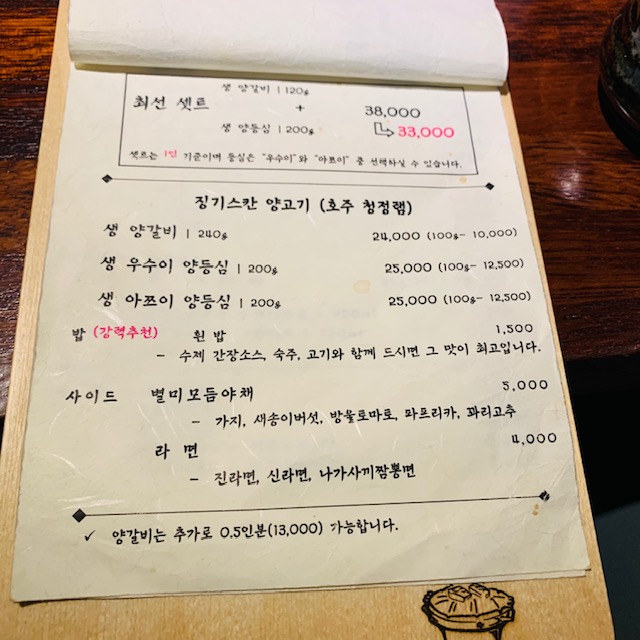 생 양갈비 | 120g
최선 셋트 + 38,000
생 양등심 | 200g 33,000
셋트는 1인 기준이며 등심은 "우수이"와 "아쯔이" 중 선택하실 수 있습니다.
징기스칸 양고기 (호주 청정램)
생 양갈비 | 240g 24,000 (100g- 10,000)
생 우수이 양등심 | 200g 25,000 (100g- 12,500)
생 아쯔이 양등심 | 200g 25,000 (100g- 12,500)
밥 (강력추천) 흰 밥 1,500
- 수제 간장소스, 숙주, 고기와 함께 드시면 그 맛이 최고입니다.
사이드 별미모듬야채 5,000
- 가지, 새송이버섯, 방울토마토, 파프리카, 꽈리고추
라 면 4,000
- 진라면, 신라면, 나가사끼짬뽕면
✓ 양갈비는 추가로 0.5인분(13,000) 가능합니다.